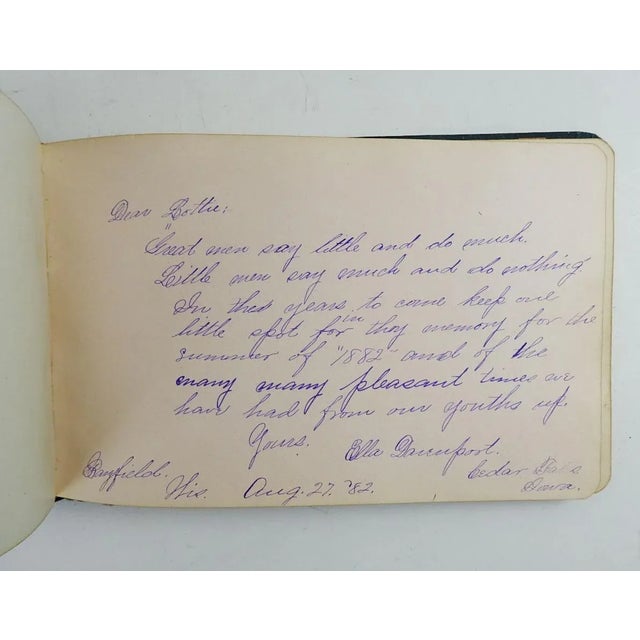 Dear Lottie;
"Great men say little and do much.
Little men say much and do nothing
In the years to come keep one
little spot for in thy memory for the
summer of "1882" and of the
many many pleasant times we
have had from our youths up.
Yours. Ella Davenport.
Bayfield. Cedar Falls
Wis. Aug. 27. '82. Iowa.